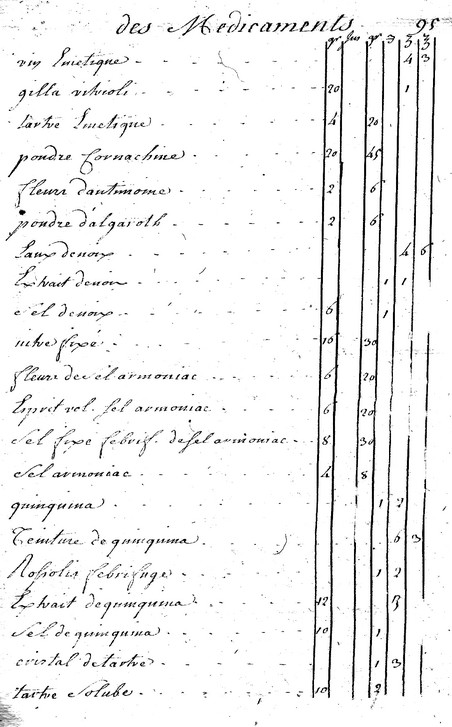 des Medicaments 95
gr jus gr ʒ ℥ ℥
vin Emetique 4 3
gilla vitrioli 20 1
tartre Emetique 4 20
poudre Cornachine 20 45
fleurs dantimoine 2 6
poudre dalgaroth 2 6
Eaux de noix 4 6
Extrait de noix 1 1
sel de noix 6 1
nitre fixé 16 30
fleurs de sel armoniac 6 20
Esprit vol. sel armoniac 6 20
sel fixe febrif. de sel armoniac 8 30
sel armoniac 4 8
quinquina 1 2
Teinture de quinquina 6 3
Rossolis febrifuge 1 2
Extrait de quinquina 12
sel de quinquina 10 1
cristal de tartre 1 3
tartre Soluble 10 2